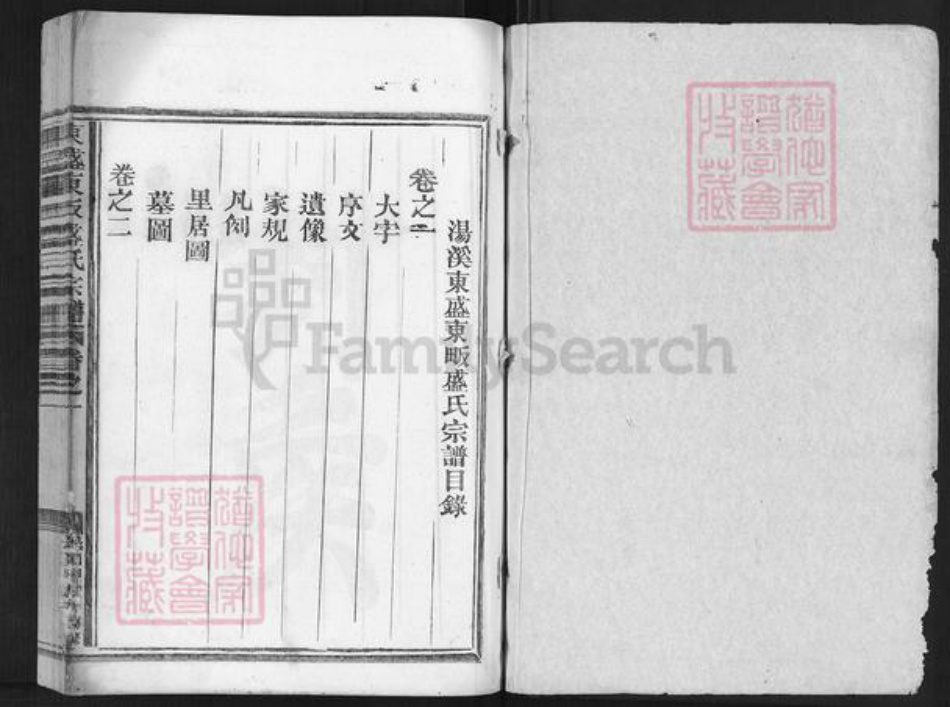 湯溪東盛東畈盛氏宗譜目錄
卷之一
大宇
序文
遺像
家規
凡例
里居圖
墓圖
卷之二
東盛東畈盛氏宗譜
卷之一
猶他家譜學會收藏
猶他家譜學會收藏
FamilySearch